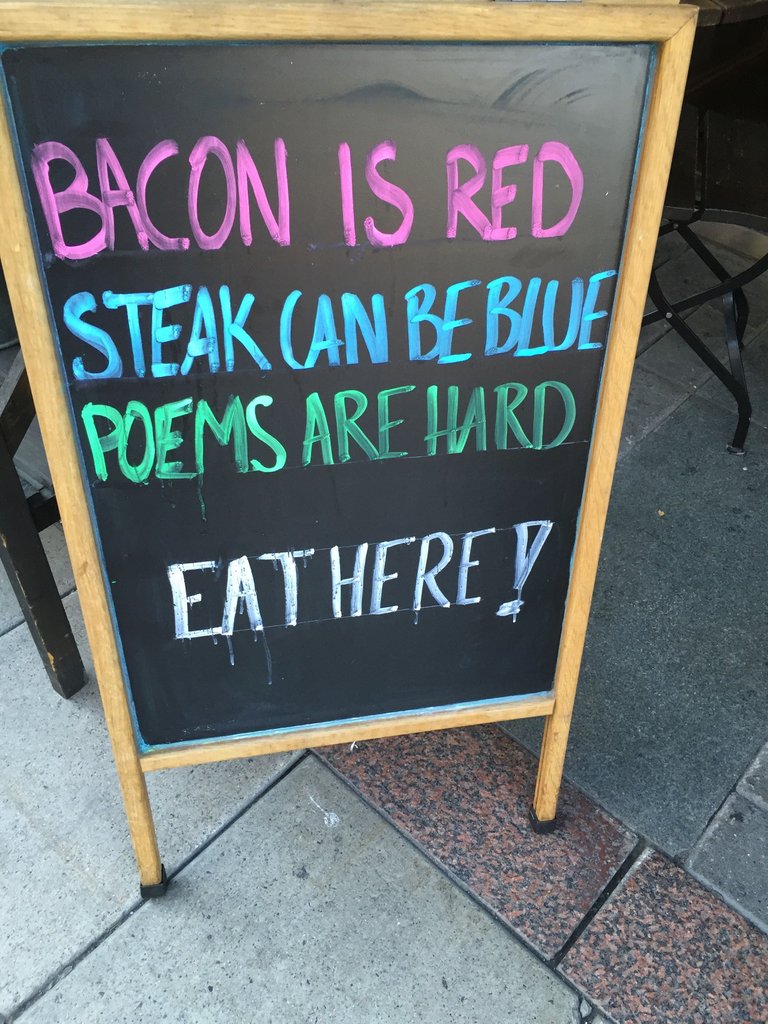 BACON IS RED
STEAK CAN BE BLUE
POEMS ARE HARD
EAT HERE!